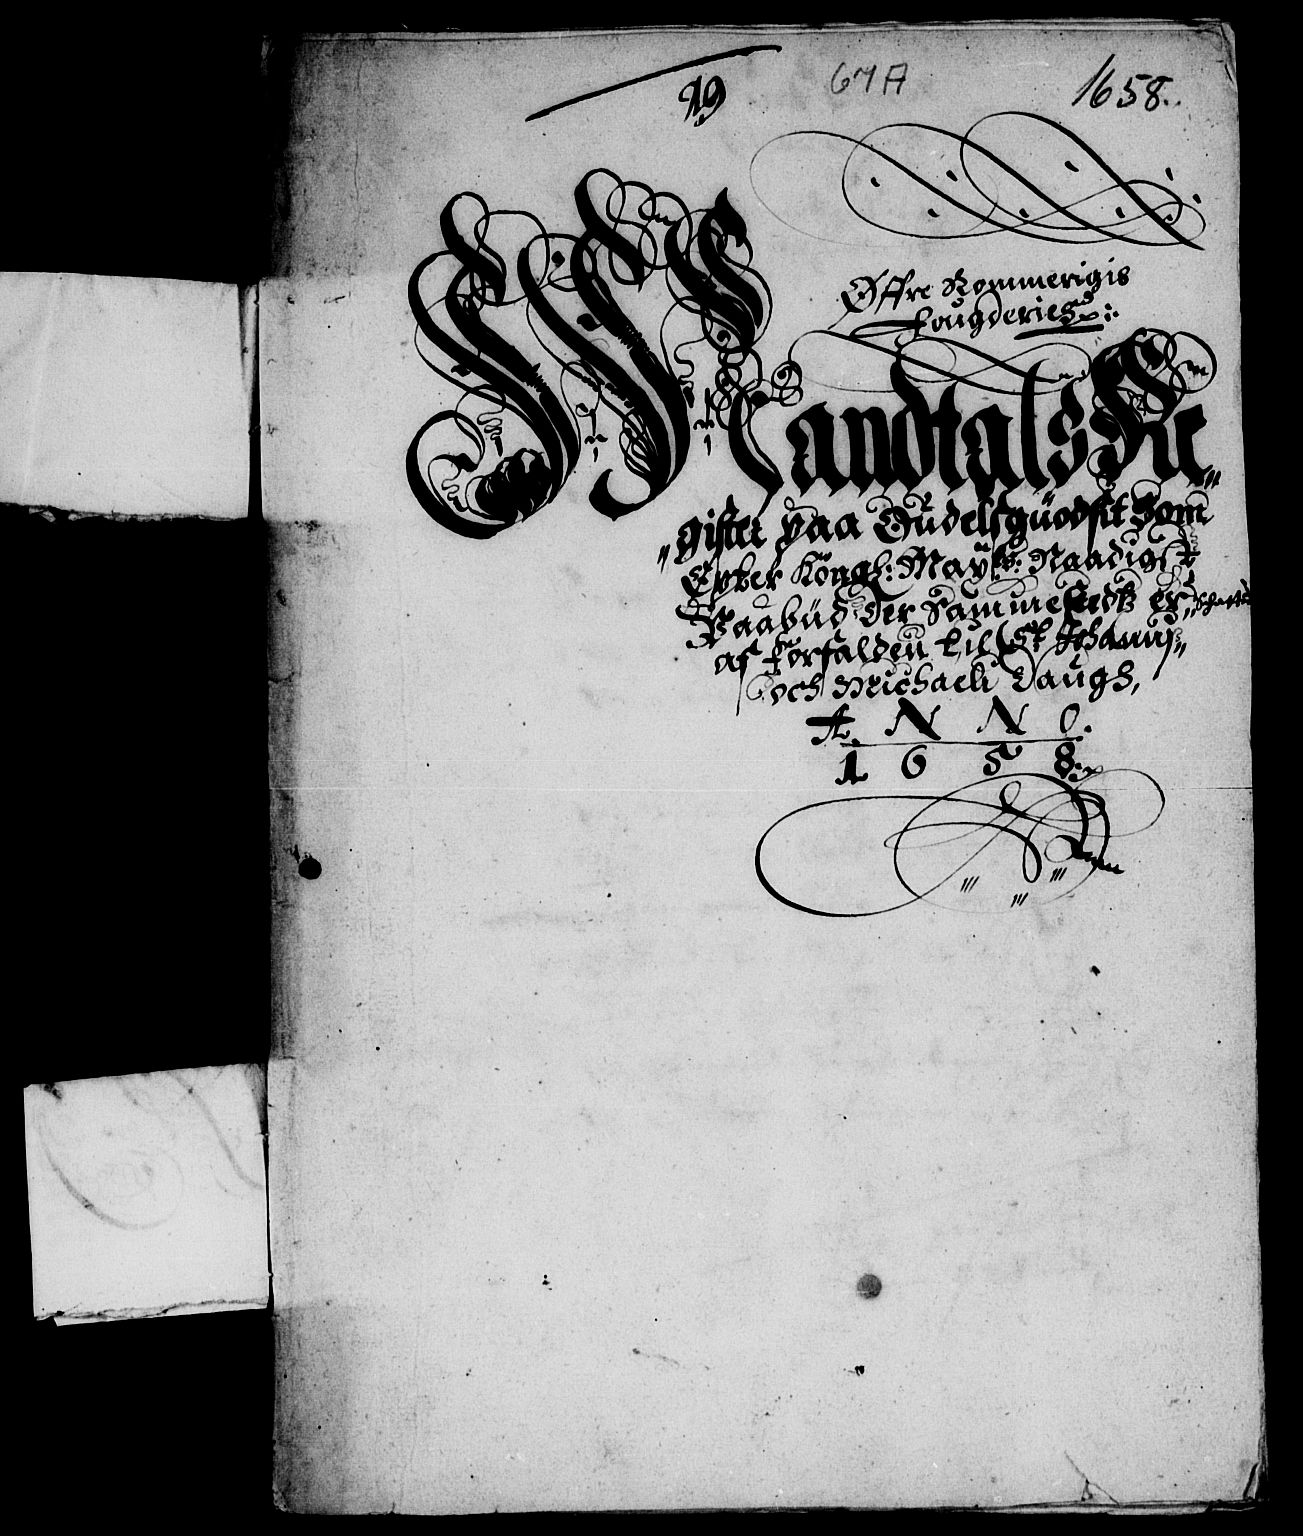 19
67A
1658.
Øffre Rommerigis
Fougderies
Mandtals Re„
„gister paa Oudelsguodsit Som
Epter Köngl: May: Naadigst
Paabüd der Sammesteds er
af forfalden til St Johannis
och Michaeli Daugs,
A N N O.
1 6 5 8